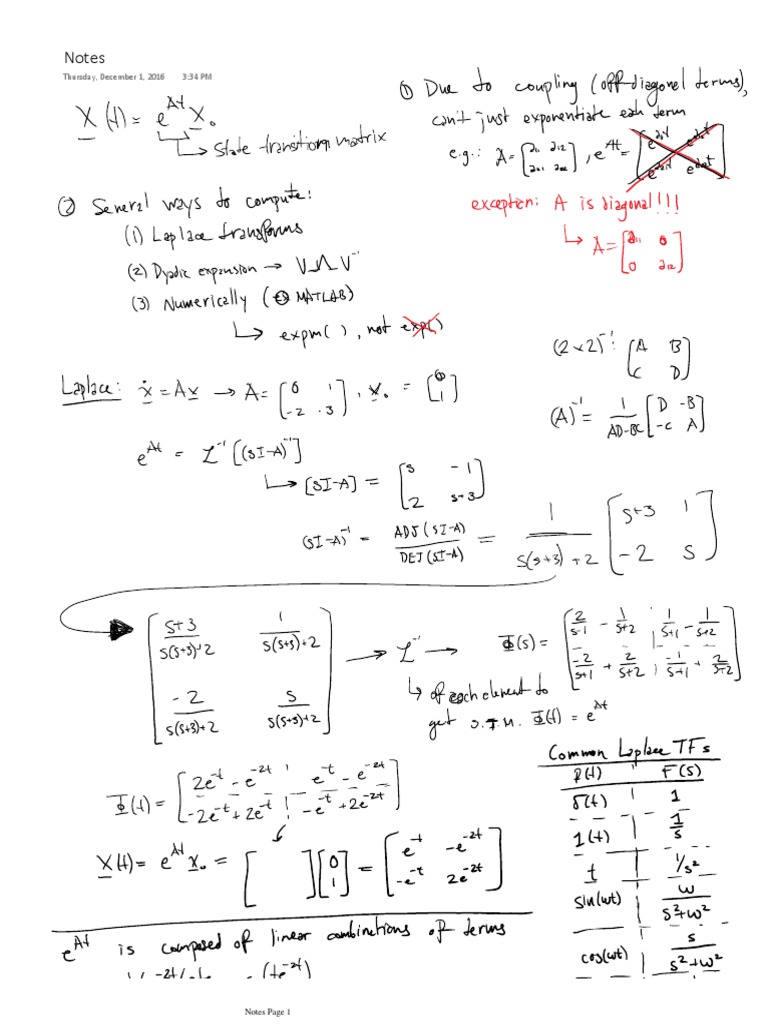 Notes
Thursday, December 1, 2016 3:34 PM
X(t) = e^{At} X_0
↳ State transition matrix
① Due to coupling (off-diagonal terms),
can't just exponentiate each term
e.g.: A = [a11 a12; a21 a22], e^{At} = [e^{a11t} e^{a12t}; e^{a21t} e^{a22t}]
exception: A is diagonal!!!
↳ A = [a11 0; 0 a12]
② Several ways to compute:
(1) Laplace transforms
(2) Dyadic expansion → V Λ V^{-1}
(3) Numerically (MATLAB)
↳ expm( ), not exp()
(2x2)^{-1}: [A B; C D]
(A)^{-1} = 1/(AD-BC) [D -B; -C A]
Laplace: ẋ = Ax → A = [0 1; -2 -3], x_0 = [0; 1]
e^{At} = L^{-1} [(sI-A)^{-1}]
↳ [sI-A] = [s -1; 2 s+3]
(sI-A)^{-1} = ADJ(sI-A)/DET(sI-A) = 1/(s(s+3)+2) [s+3 1; -2 s]
[(s+3)/(s(s+3)+2) 1/(s(s+3)+2); -2/(s(s+3)+2) s/(s(s+3)+2)] → L^{-1} →
Φ(s) = [2/(s-1) - 1/(s+2) 1/(s+1) - 1/(s+2); -2/(s+1) + 2/(s+2) -1/(s+1) + 2/(s+2)]
↳ of each element to
get S.T.M. Φ(t) = e^{At}
Φ(t) = [2e^{-t} - e^{-2t} e^{-t} - e^{-2t}; -2e^{-t} + 2e^{-t} -e^{-t} + 2e^{-2t}]
X(t) = e^{At} x_0 = [ ] [0; 1] = [e^{-t} -e^{-2t}; -e^{-t} 2e^{-2t}]
e^{At} is composed of linear combinations of terms
(te^{-2t})
Common Laplace TFs
f(t) F(s)
δ(t) 1
1(t) 1/s
t 1/s^2
sin(wt) w/(s^2+w^2)
cos(wt) s/(s^2+w^2)
Notes Page 1